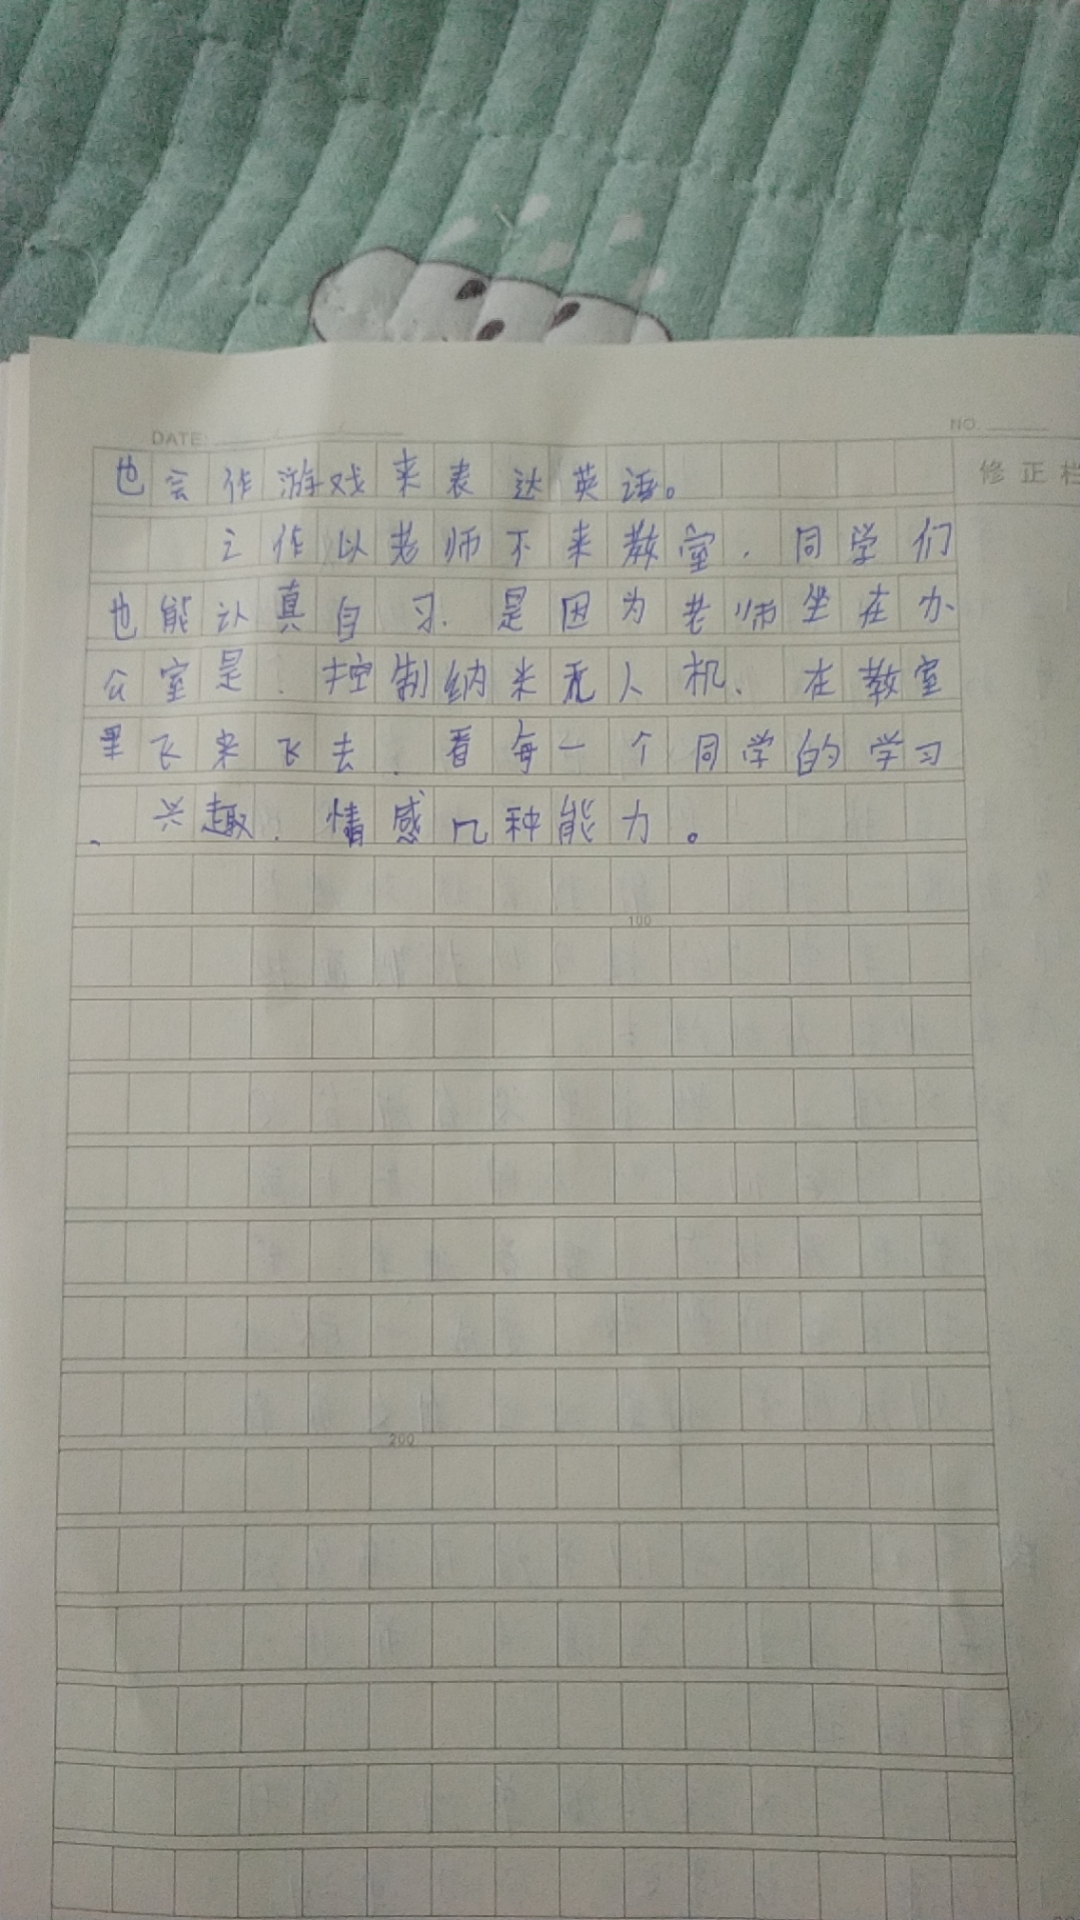 DATE: NO.
修正栏
也会作游戏来表达英语。
之作以老师不来教室,同学们
也能认真自习.是因为老师坐在办
公室是.控制纳米无人机、在教室
里飞来飞去.看每一个同学的学习
、兴趣.情感几种能力。
100
200